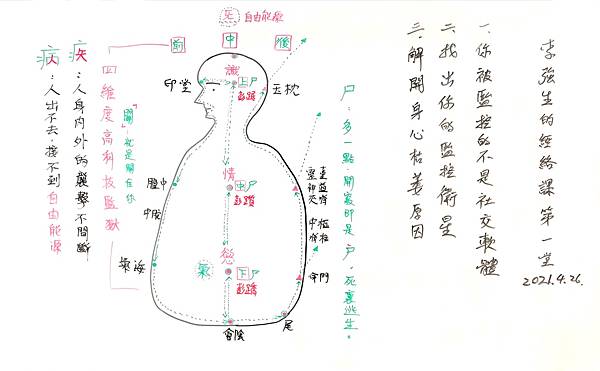 李強生的經絡課第一堂
2021.4.26.
一.你被監控的不是社交軟體
二.找出你的監控衛星
三.解開身心枯萎原因
尸:多一點開竅即是戶。死裏逃生。
炁 自由能源
前 中 後
識
上尸
彭躓
印堂
玉枕
情
中尸
彭躓
膻中
中脘
慾
氣
下尸
彭蹻
氣海
命門
尾
會陰
四維度高科技監獄
關,就是關在你
疾:人身內外的襲擊不間斷
病:人出不去,接不到自由能源